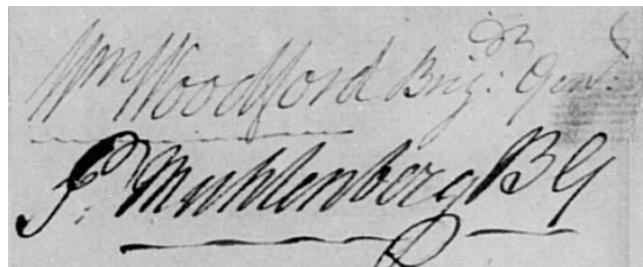 Wm Woodford Brigr. Genl.
P. Muhlenberg B G